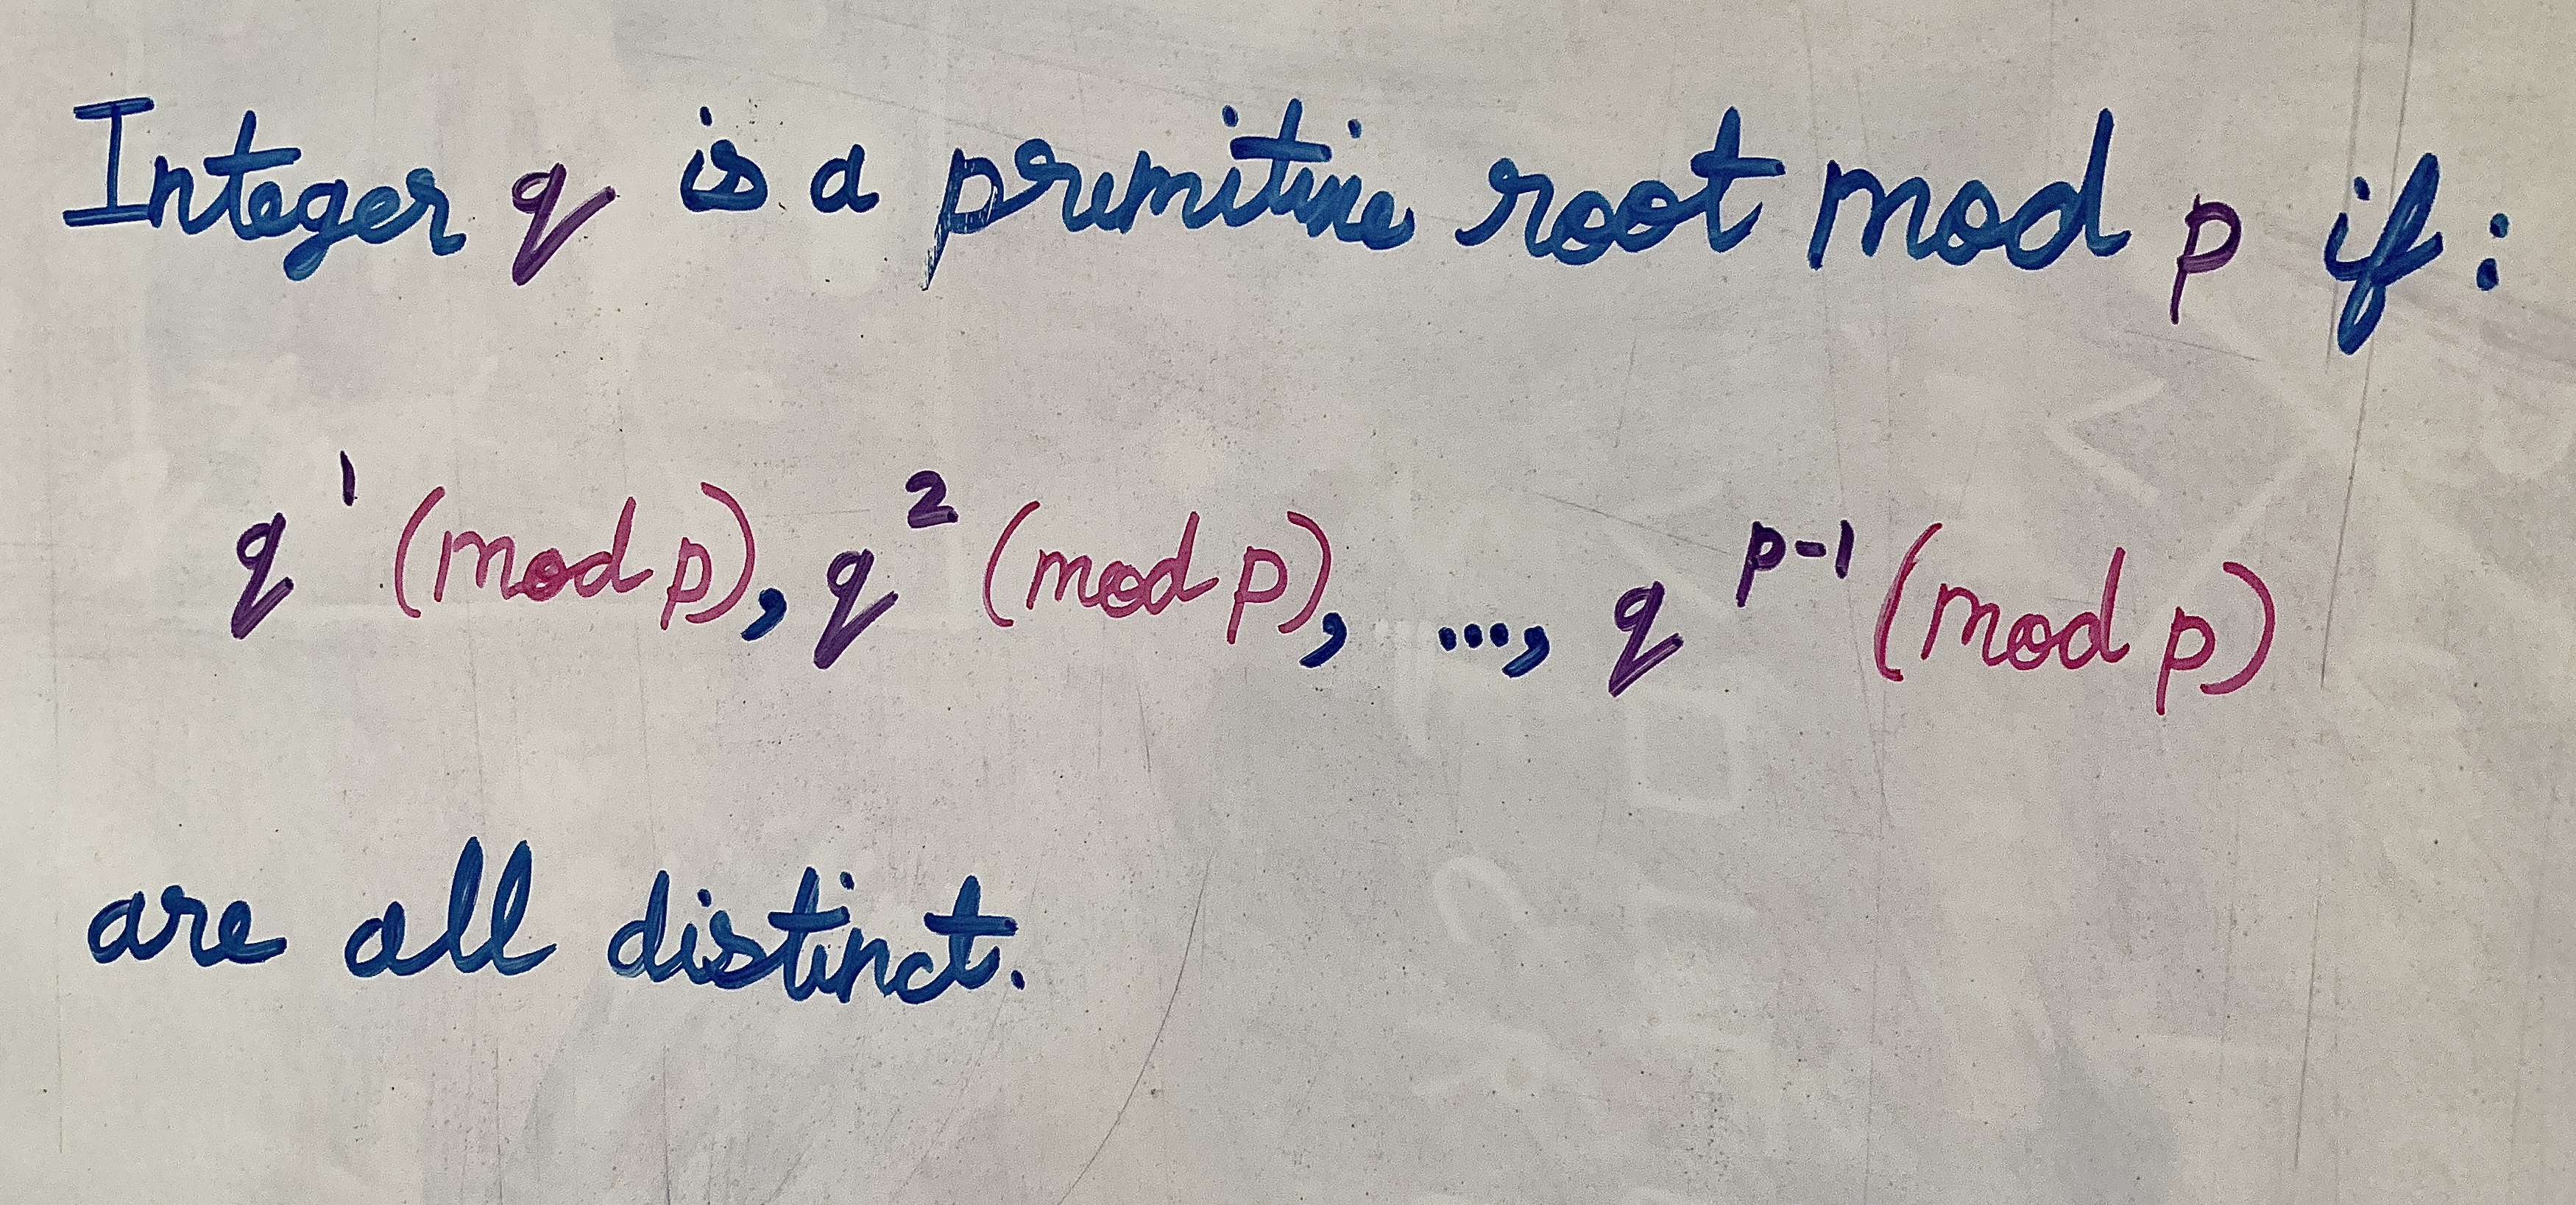 Integer q is a primitive root mod p if:
q¹ (mod p), q² (mod p), ..., qᵖ⁻¹ (mod p)
are all distinct.